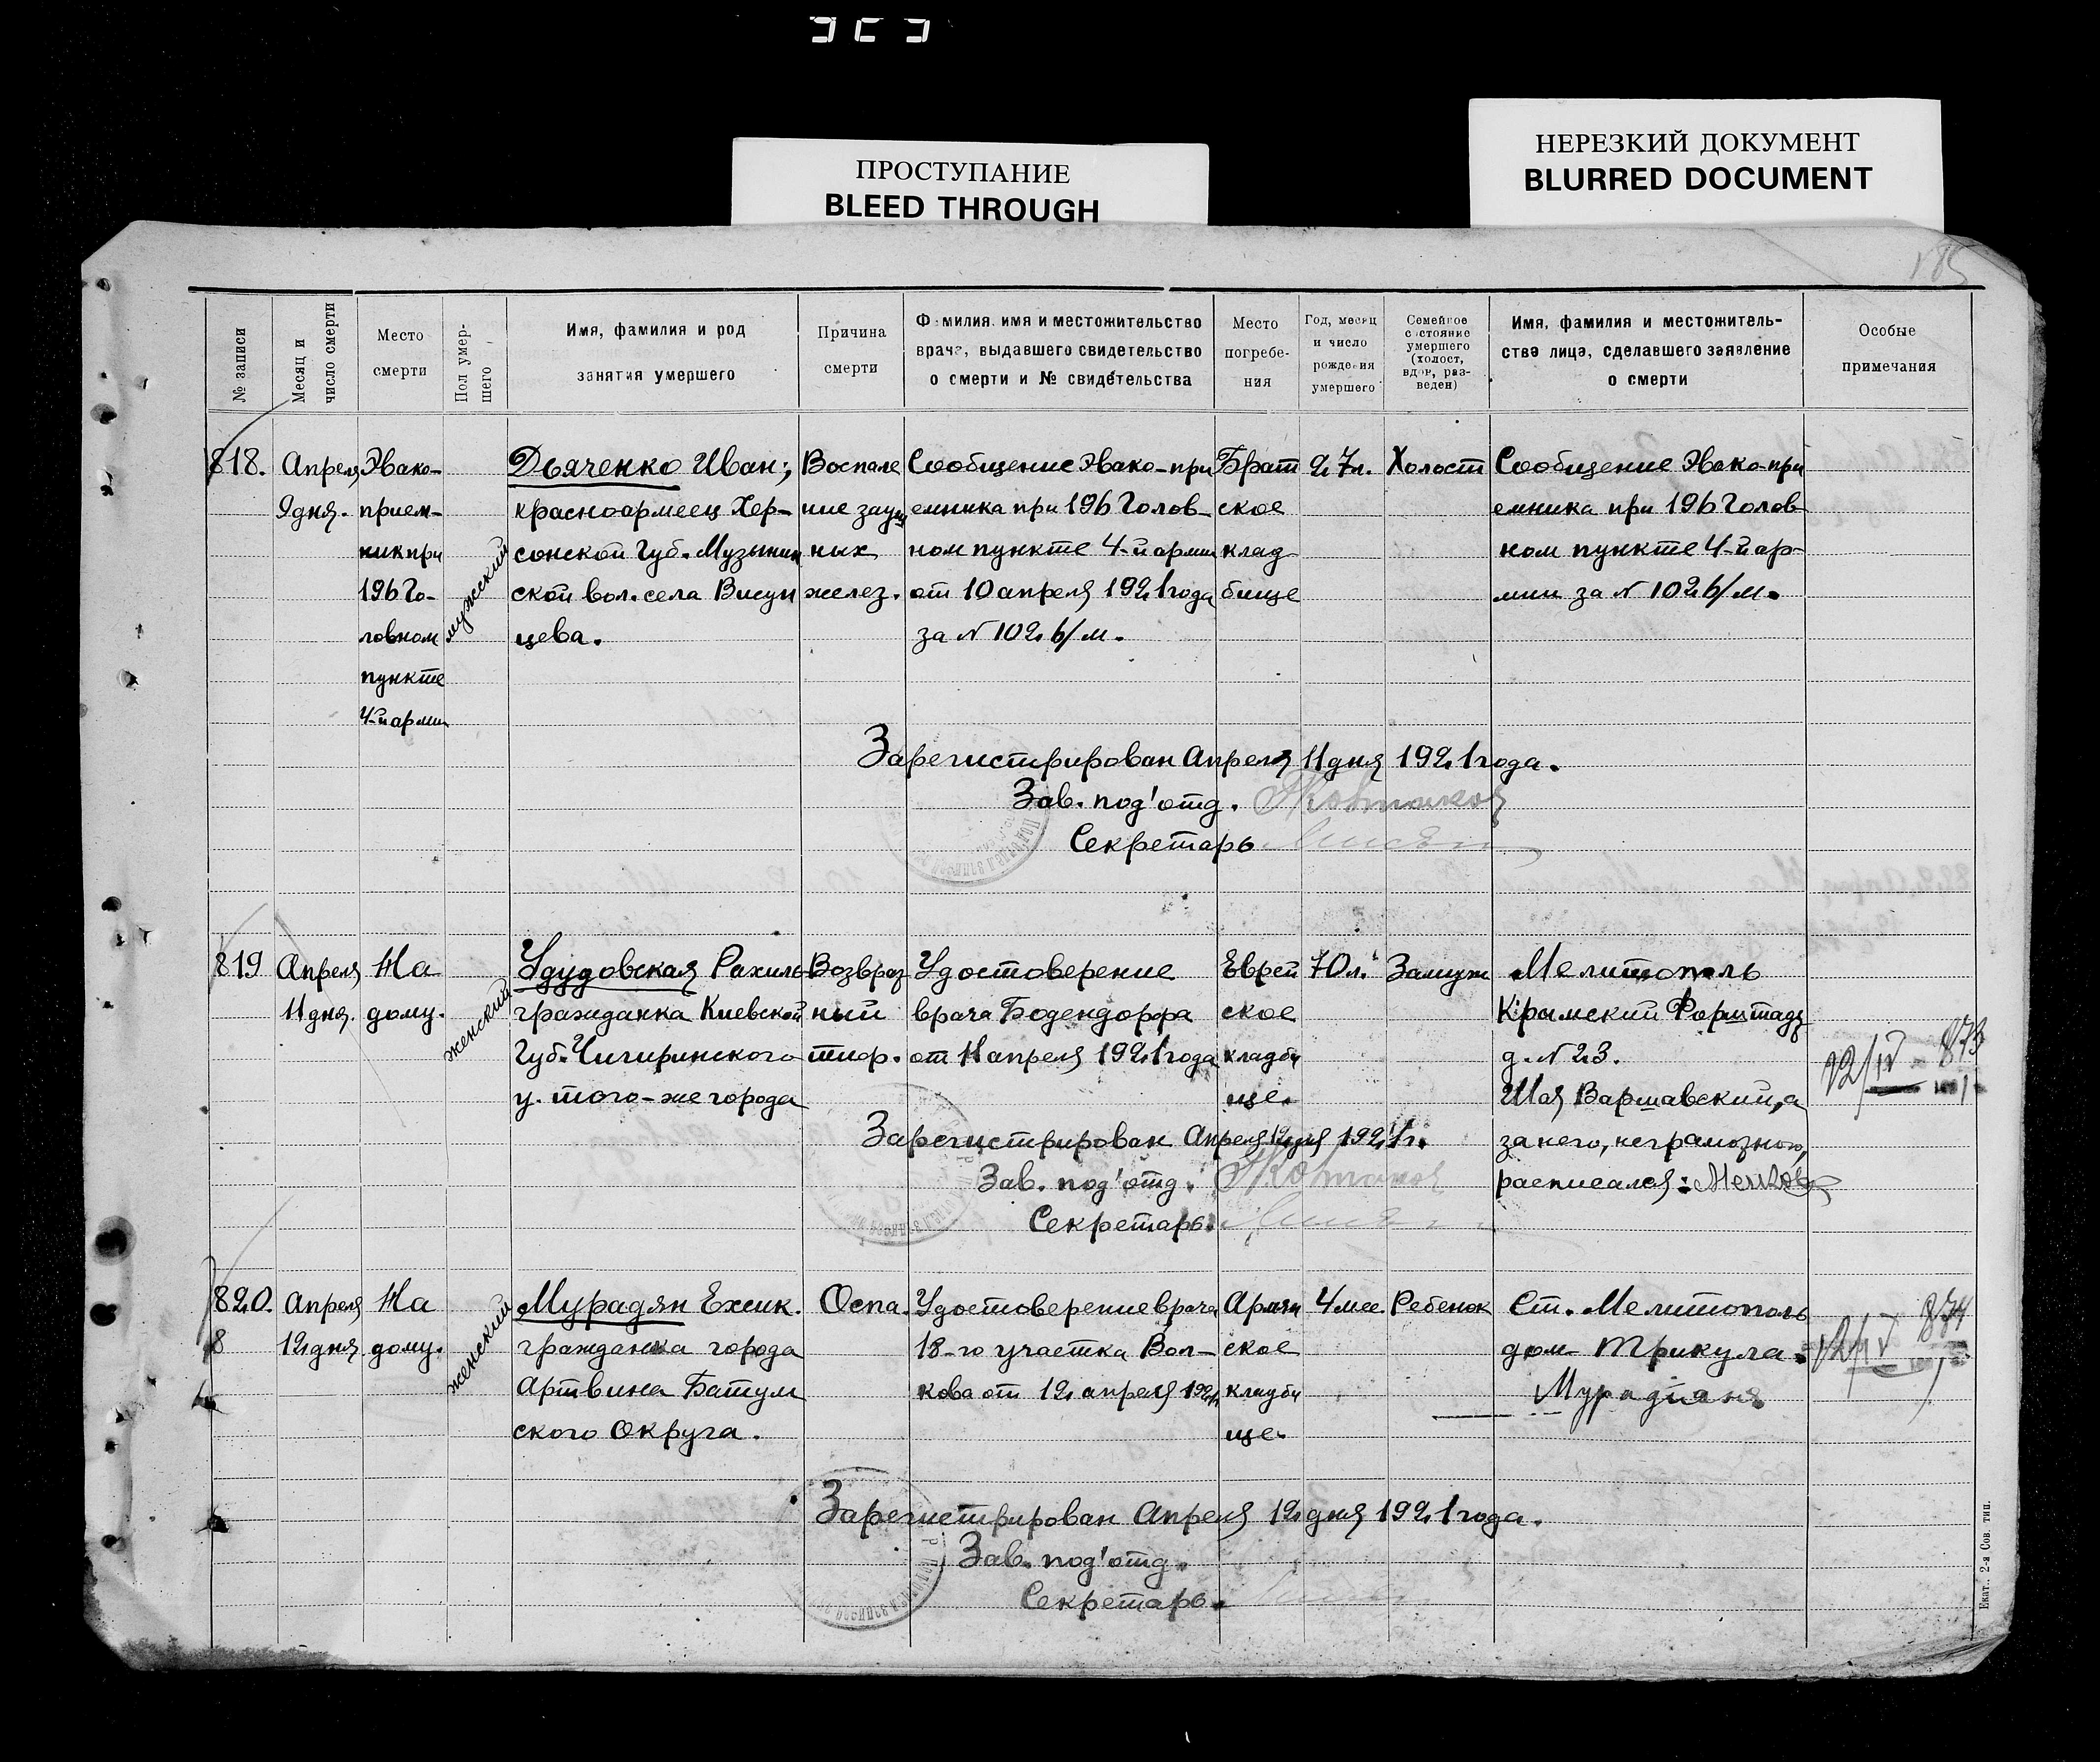 ПРОСТУПАНИЕ
BLEED THROUGH
НЕРЕЗКИЙ ДОКУМЕНТ
BLURRED DOCUMENT
185
№ записи
Месяц и
число смерти
Место
смерти
Пол умер-
шего
Имя, фамилия и род
занятия умершего
Причина
смерти
Фамилия, имя и местожительство
врача, выдавшего свидетельство
о смерти и № свидетельства
Место
погребе-
ния
Год, месяц
и число
рождения
умершего
Семейное
состояние
умершего
(холост,
вдов, раз-
веден)
Имя, фамилия и местожитель-
ства лица, сделавшего заявление
о смерти
Особые
примечания
818.
Апреля
9 дня.
Эвако-
прием-
ник при
196 Го-
ловном
пункте
4-й армии
мужской
Дьяченко Иван;
красноармеец Хер-
сонской Губ. Музыкин
ской вол. села Висун
цева.
Воспале
ние зауш
ных
желез.
Сообщение Эвако-при
емника при 196 Голов-
ном пункте 4-й армии
от 10 апреля 1921 года
за N 102 б/м.
Брат
ское
клад
бище
27 л.
Холост
Сообщение Эвако-при
емника при 196 Голов-
ном пункте 4-й ар-
мии за N 102 б/м.
Зарегистрирован Апреля 11 дня 1921 года.
Зав. под'отд.
Секретарь
819
Апреля
11 дня.
На
дому.
женский
Удудовская Рахиль
гражданка Киевской
Губ. Чигиринского
у. того-же города
Возвраз
ный
тиф.
Удостоверение
врача Бодендорфа
от 11 апреля 1921 года
Еврей
ское
кладби
ще.
70 л.
Замуж
Мелитополь
Крымский Форштадт
д. N 23.
Шая Варшавский, а
за него, неграмотного,
расписался:
12/IV 873
Зарегистрирован Апреля 12 дня 1921 г.
Зав. под'отд.
Секретарь.
820.
Апреля
12 дня
На
дому.
женский
Мурадян Ехсик.
гражданка города
Артвина Батум
ского Округа.
Оспа.
Удостоверение врача
18-го участка Вол-
кова от 12 апреля 1921 г.
Армян
ское
кладби
ще.
4 мес.
Ребенок
Ст. Мелитополь
дом Трикула.
Мурадиян
12/IV 874
Зарегистрирован Апреля 12 дня 1921 года.
Зав. под'отд.
Секретарь.
Екат., 2-я Сов. тип.